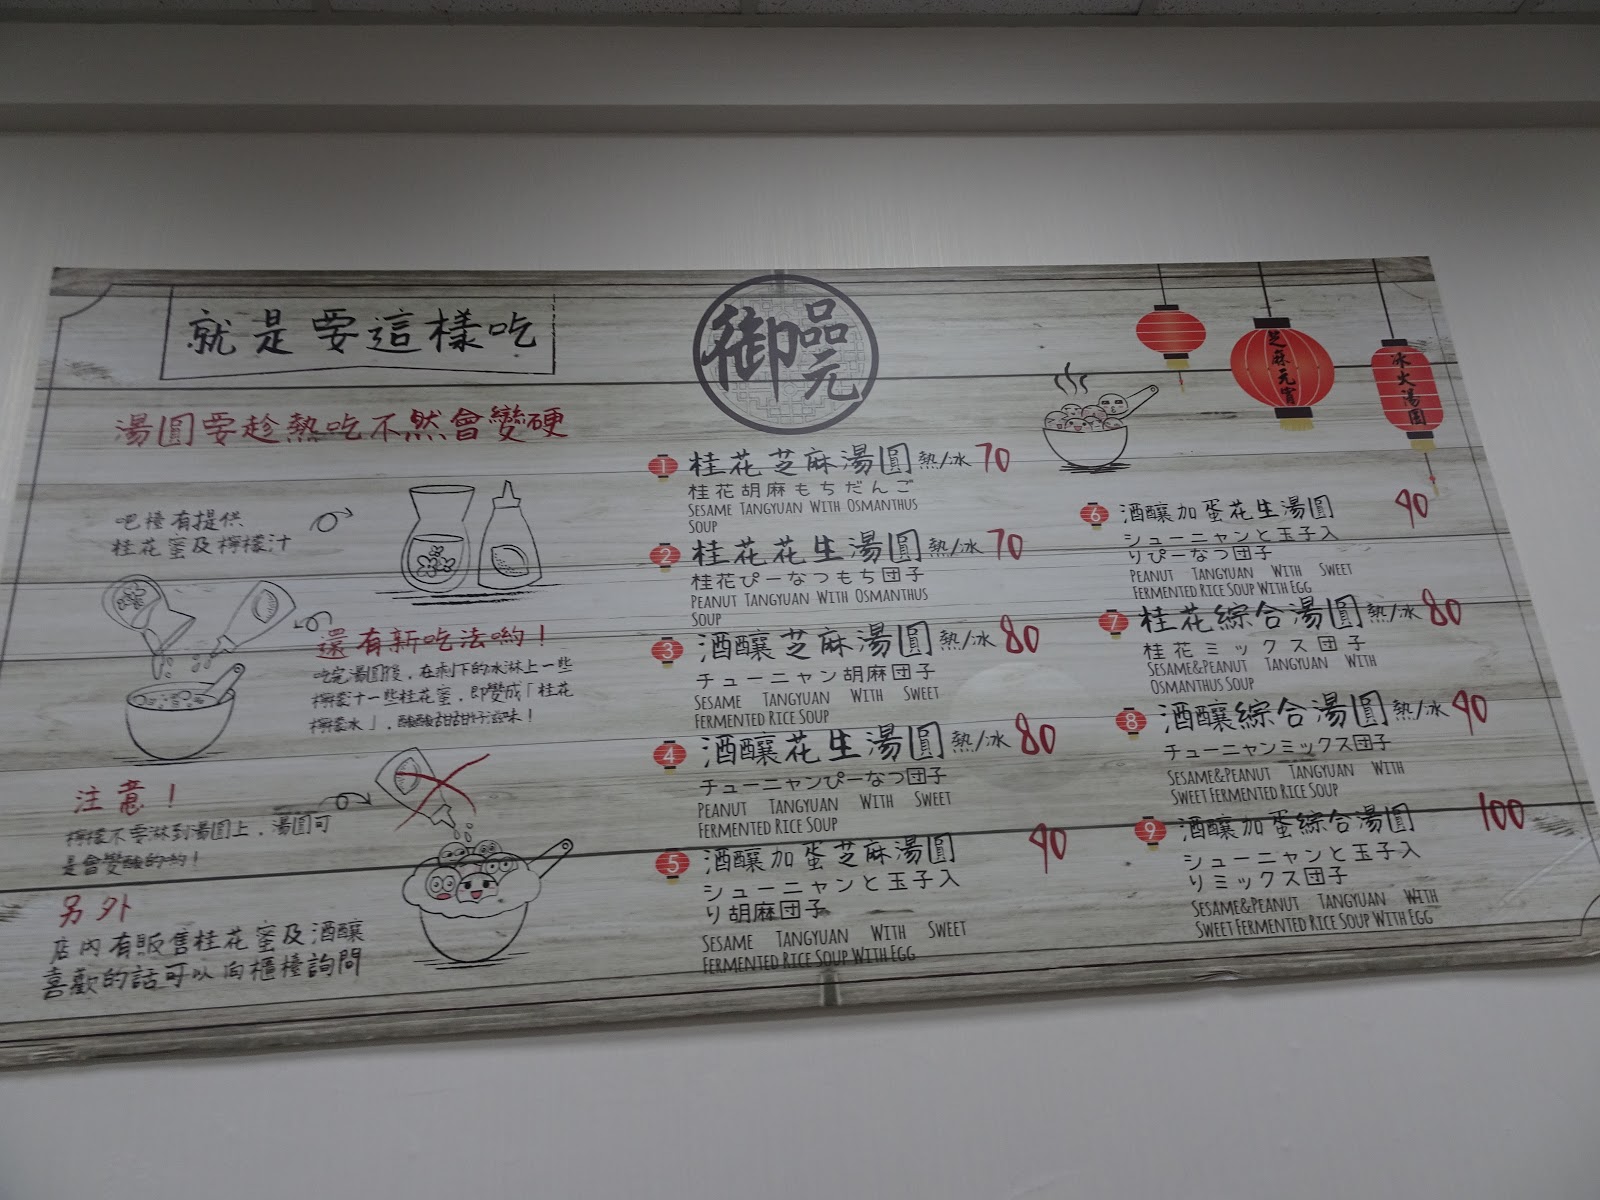 就是要這樣吃
湯圓要趁熱吃不然會變硬
吧檯有提供
桂花蜜及檸檬汁
還有新吃法喲！
吃完湯圓後，在剩下的冰淋上一些
檸檬汁一些桂花蜜，即變成「桂花
檸檬冰」，酸酸甜甜好滋味！
注意！
檸檬不要淋到湯圓上，湯圓可
是會變酸的喲！
另外
店內有販售桂花蜜及酒釀
喜歡的話可以向櫃檯詢問
御品元
芝麻元宵
冰火湯圓
1 桂花芝麻湯圓 熱/冰 70
桂花胡麻もちだんご
SESAME TANGYUAN WITH OSMANTHUS
SOUP
2 桂花花生湯圓 熱/冰 70
桂花ぴーなつもち団子
PEANUT TANGYUAN WITH OSMANTHUS
SOUP
3 酒釀芝麻湯圓 熱/冰 80
チューニャン胡麻団子
SESAME TANGYUAN WITH SWEET
FERMENTED RICE SOUP
4 酒釀花生湯圓 熱/冰 80
チューニャンぴーなつ団子
PEANUT TANGYUAN WITH SWEET
FERMENTED RICE SOUP
5 酒釀加蛋芝麻湯圓 90
シューニャンと玉子入
り胡麻団子
SESAME TANGYUAN WITH SWEET
FERMENTED RICE SOUP WITH EGG
6 酒釀加蛋花生湯圓 90
シューニャンと玉子入
りぴーなつ団子
PEANUT TANGYUAN WITH SWEET
FERMENTED RICE SOUP WITH EGG
7 桂花綜合湯圓 熱/冰 80
桂花ミックス団子
SESAME&PEANUT TANGYUAN WITH
OSMANTHUS SOUP
8 酒釀綜合湯圓 熱/冰 90
チューニャンミックス団子
SESAME&PEANUT TANGYUAN WITH
SWEET FERMENTED RICE SOUP
9 酒釀加蛋綜合湯圓 100
シューニャンと玉子入
りミックス団子
SESAME&PEANUT TANGYUAN WITH
SWEET FERMENTED RICE SOUP WITH EGG